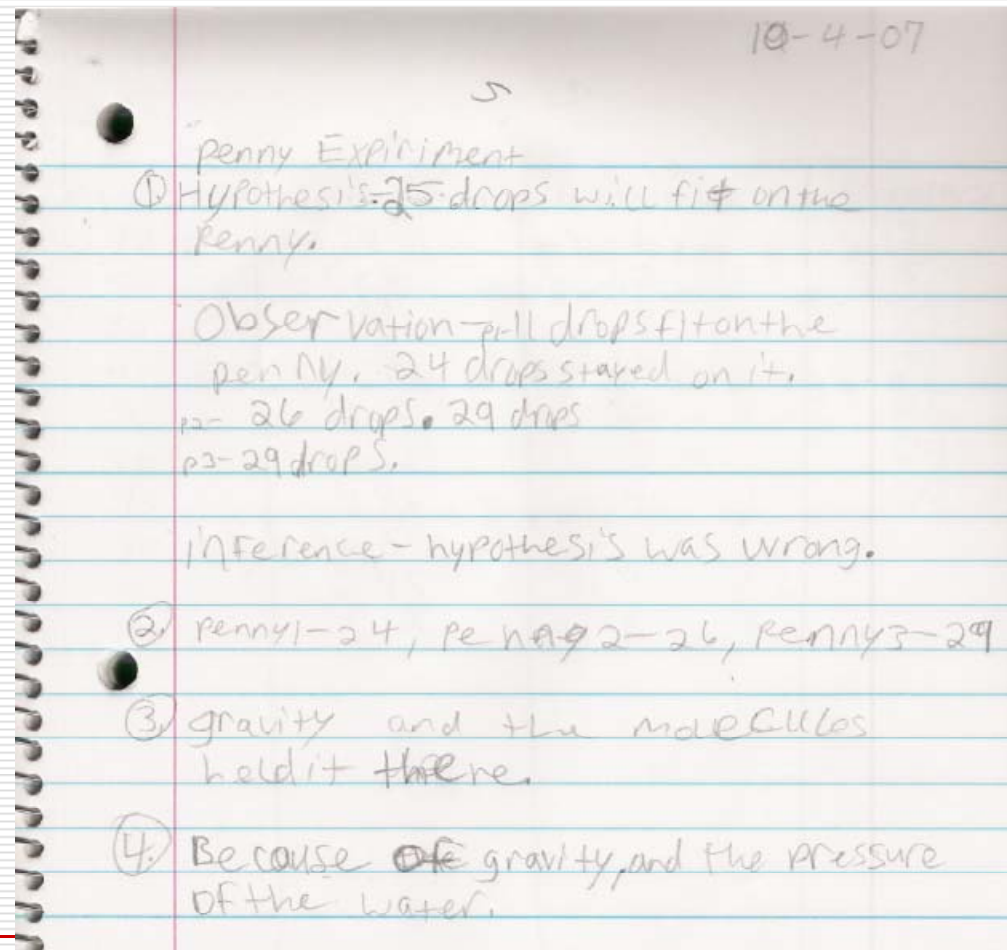 10-4-07
5
Penny Expiriment
① Hypothesis-25 drops will fit on the
Penny.
Observation-p1-11 drops fit on the
penny. 24 drops stayed on it.
p2- 26 drops. 29 drops
p3-29 drops.
inference - hypothesis was wrong.
② Penny1-24, Penny2-26, Penny3-29
③ gravity and the molecules
held it there.
④ Because of gravity, and the pressure
of the water.